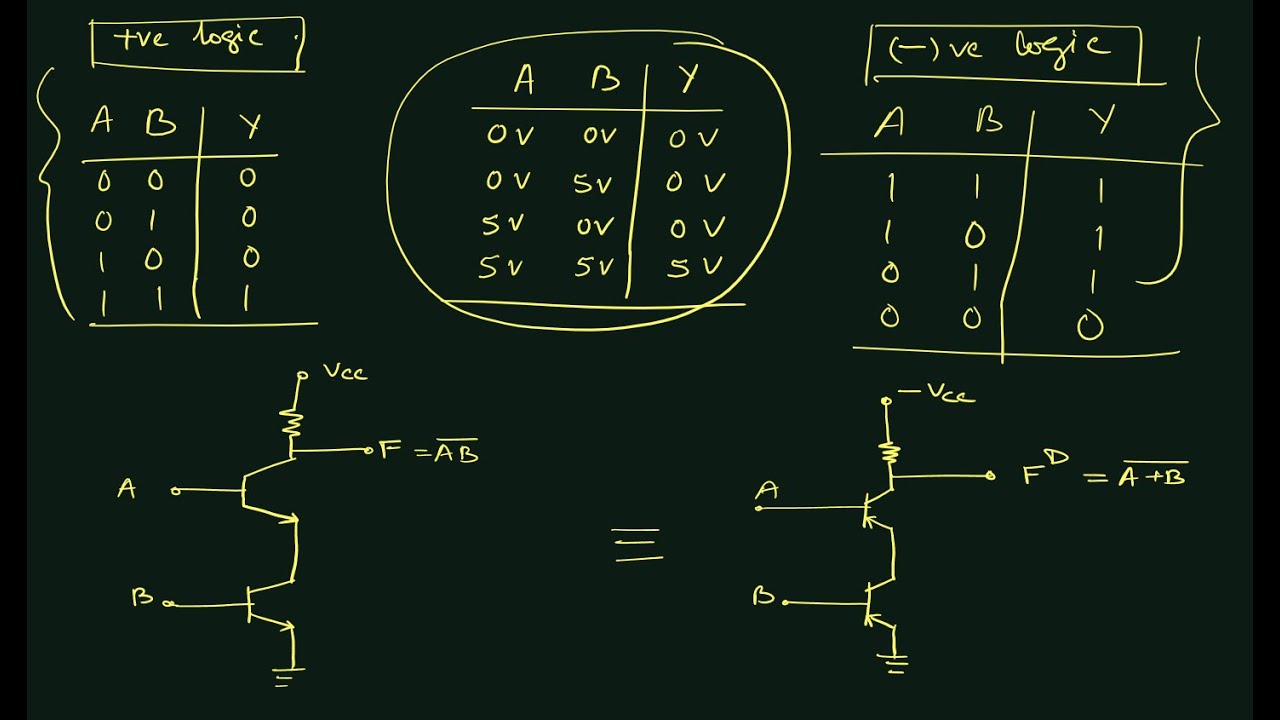 +ve logic
A B Y
0 0 0
0 1 0
1 0 0
1 1 1
A B Y
0V 0V 0V
0V 5V 0V
5V 0V 0V
5V 5V 5V
(-)ve logic
A B Y
1 1 1
1 0 1
0 1 1
0 0 0
Vcc
F = \overline{AB}
A
B
≡
-Vcc
F^D = \overline{A+B}
A
B